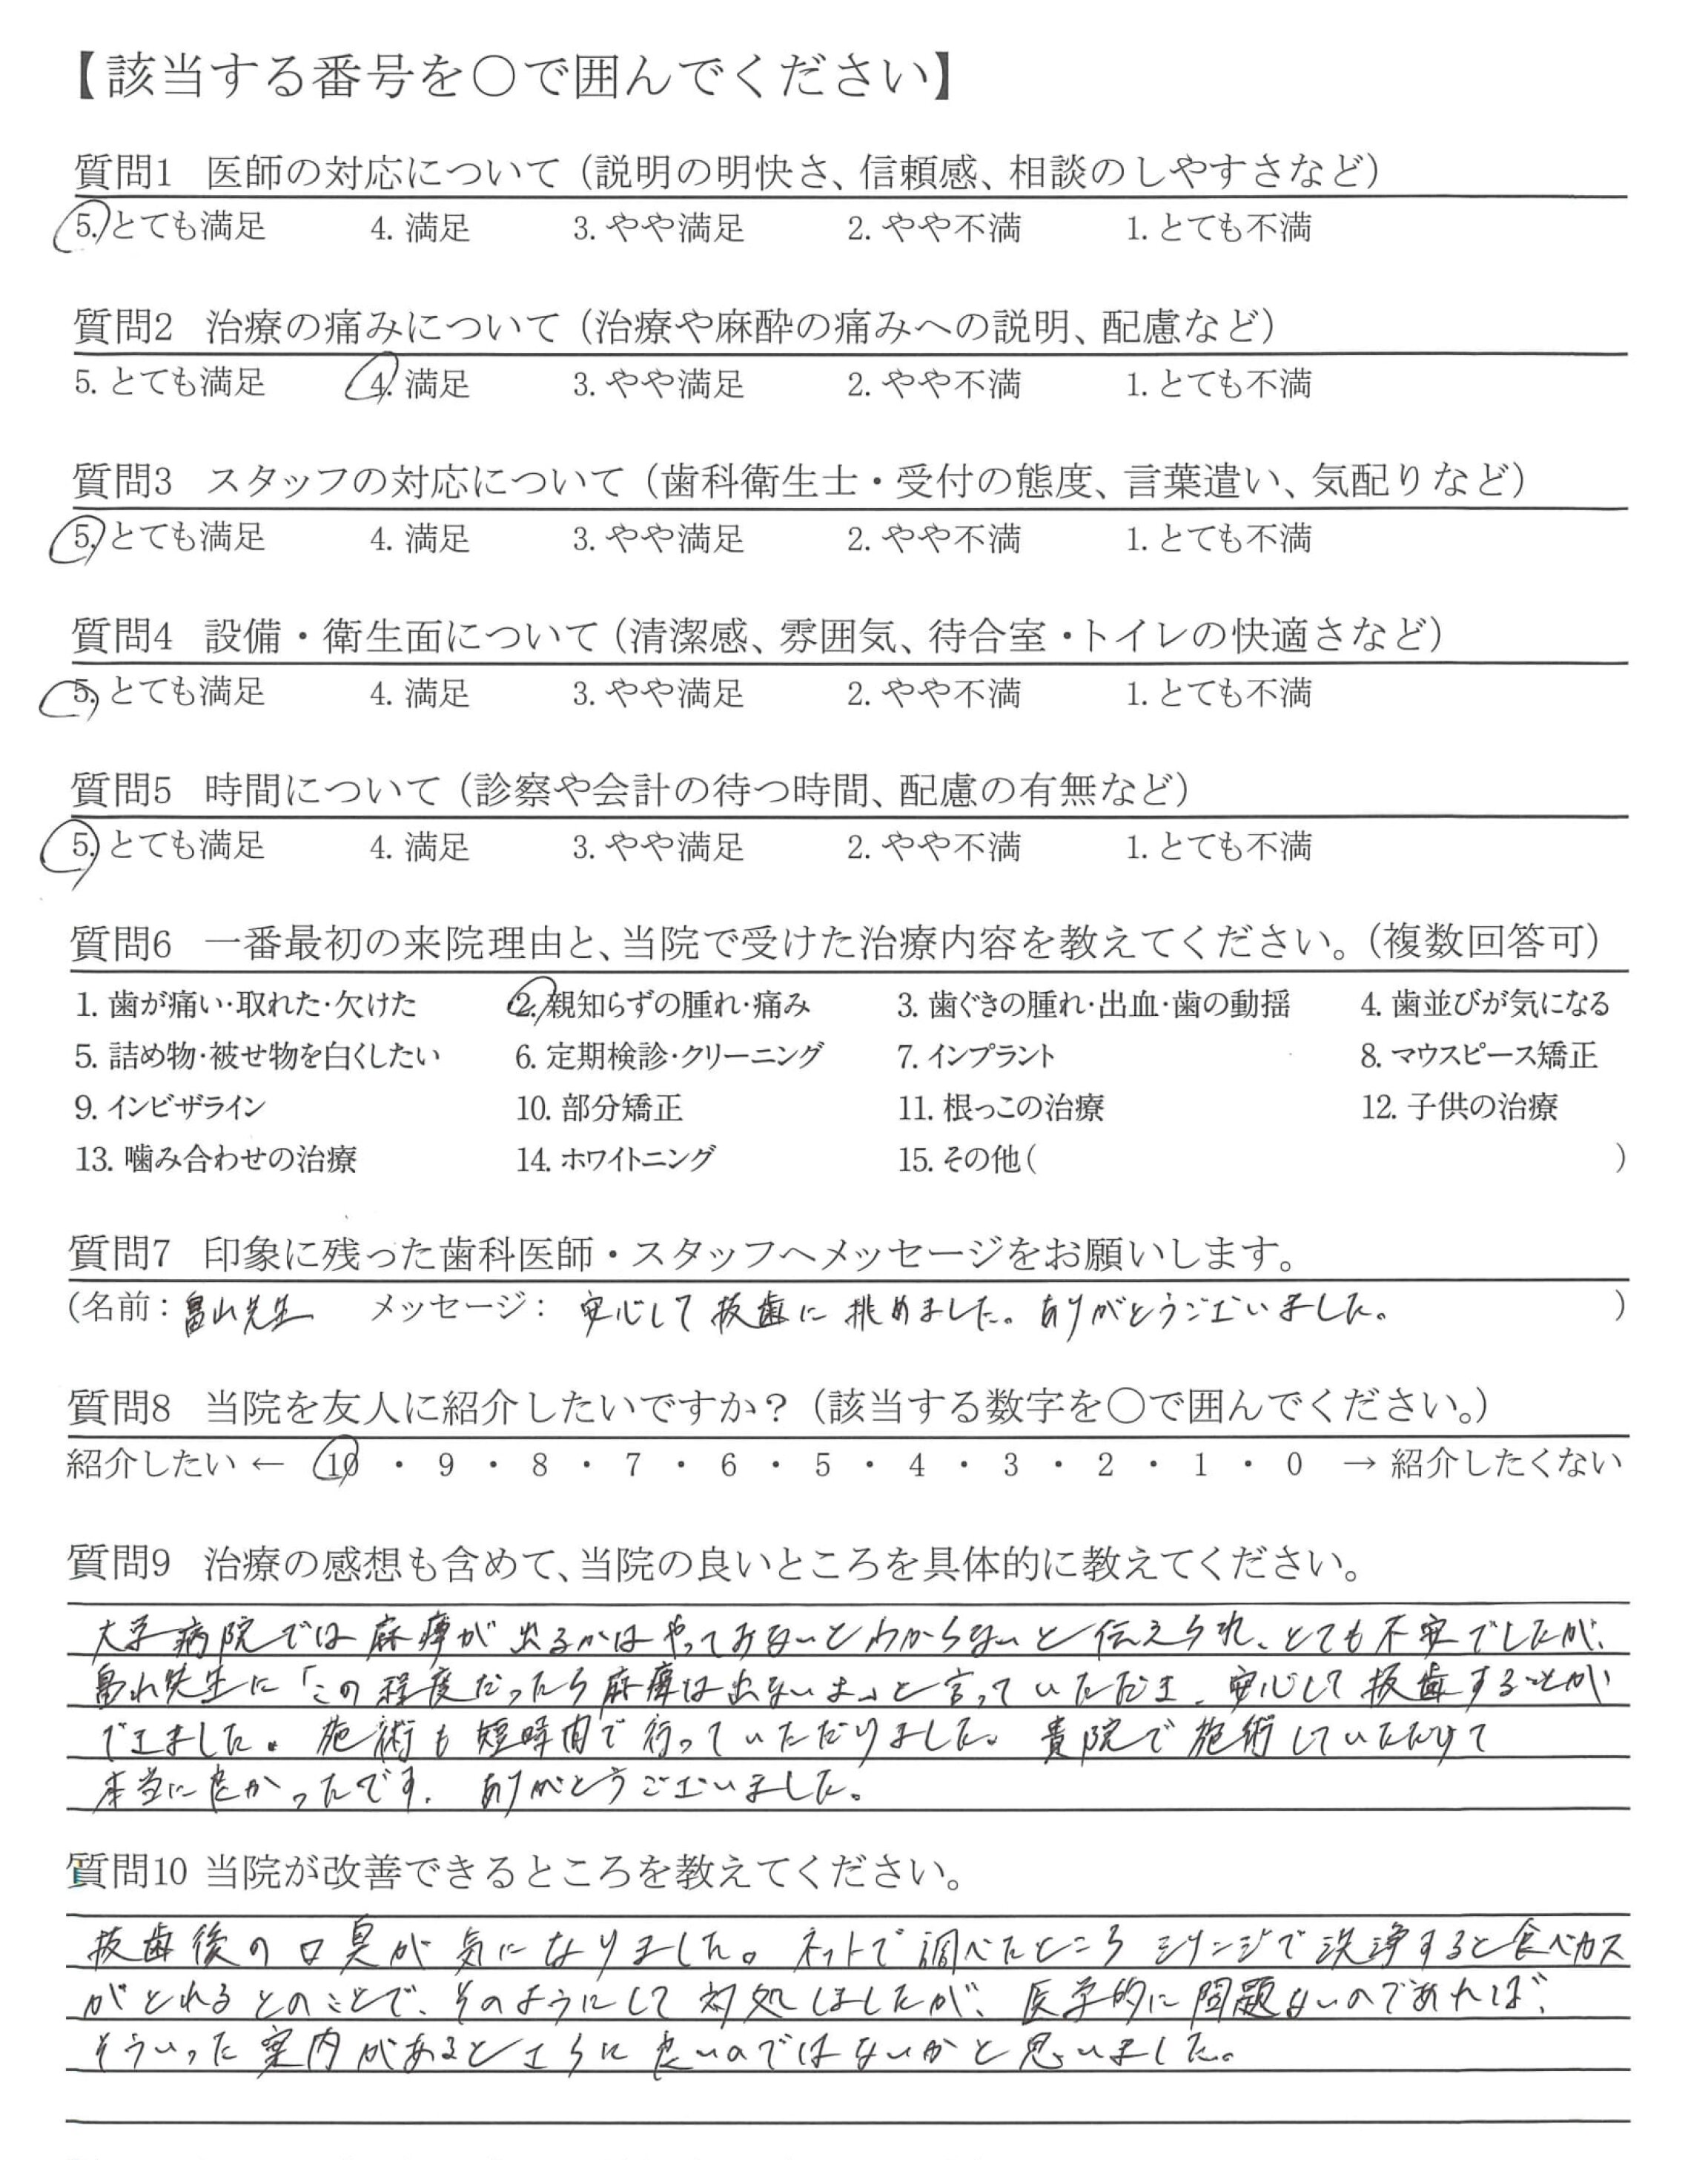 【該当する番号を〇で囲んでください】
質問1 医師の対応について（説明の明快さ、信頼感、相談のしやすさなど）
5. とても満足 4. 満足 3. やや満足 2. やや不満 1. とても不満
質問2 治療の痛みについて（治療や麻酔の痛みへの説明、配慮など）
5. とても満足 4. 満足 3. やや満足 2. やや不満 1. とても不満
質問3 スタッフの対応について（歯科衛生士・受付の態度、言葉遣い、気配りなど）
5. とても満足 4. 満足 3. やや満足 2. やや不満 1. とても不満
質問4 設備・衛生面について（清潔感、雰囲気、待合室・トイレの快適さなど）
5. とても満足 4. 満足 3. やや満足 2. やや不満 1. とても不満
質問5 時間について（診察や会計の待つ時間、配慮の有無など）
5. とても満足 4. 満足 3. やや満足 2. やや不満 1. とても不満
質問6 一番最初の来院理由と、当院で受けた治療内容を教えてください。（複数回答可）
1. 歯が痛い・取れた・欠けた 2. 親知らずの腫れ・痛み 3. 歯ぐきの腫れ・出血・歯の動揺 4. 歯並びが気になる
5. 詰め物・被せ物を白くしたい 6. 定期検診・クリーニング 7. インプラント 8. マウスピース矯正
9. インビザライン 10. 部分矯正 11. 根っこの治療 12. 子供の治療
13. 噛み合わせの治療 14. ホワイトニング 15. その他（ ）
質問7 印象に残った歯科医師・スタッフへメッセージをお願いします。
（名前：畠山先生 メッセージ： 安心して抜歯に挑めました。ありがとうございました。 ）
質問8 当院を友人に紹介したいですか？（該当する数字を〇で囲んでください。）
紹介したい ← 10 ・ 9 ・ 8 ・ 7 ・ 6 ・ 5 ・ 4 ・ 3 ・ 2 ・ 1 ・ 0 → 紹介したくない
質問9 治療の感想も含めて、当院の良いところを具体的に教えてください。
大学病院では麻痺が出るかはやってみないとわからないと伝えられ、とても不安でしたが、
畠山先生に「この程度だったら麻痺は出ないよ」と言っていただき、安心して抜歯することが
できました。施術も短時間で行っていただけました。貴院で施術していただけて
本当に良かったです。ありがとうございました。
質問10 当院が改善できるところを教えてください。
抜歯後の口臭が気になりました。ネットで調べたところシリンジで洗浄すると食べカス
がとれるとのことで、そのようにして対処しましたが、医学的に問題ないのであれば、
そういった案内があるとさらに良いのではないかと思いました。